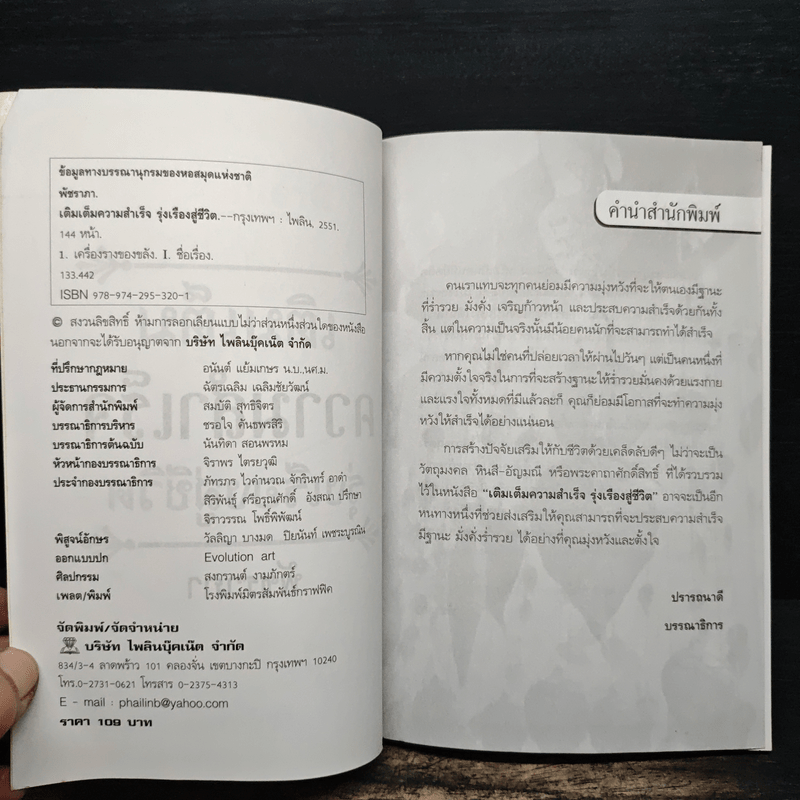 ข้อมูลทางบรรณานุกรมของหอสมุดแห่งชาติ
พัชราภา.
เติมเต็มความสำเร็จ รุ่งเรืองสู่ชีวิต.--กรุงเทพฯ : ไพลิน, 2551.
144 หน้า.
1. เครื่องรางของขลัง. I. ชื่อเรื่อง.
133.442
ISBN 978-974-295-320-1
© สงวนลิขสิทธิ์ ห้ามการลอกเลียนแบบไม่ว่าส่วนหนึ่งส่วนใดของหนังสือ
นอกจากจะได้รับอนุญาตจาก บริษัท ไพลินบุ๊คเน็ต จำกัด
ที่ปรึกษากฎหมาย อนันต์ แย้มเกษร น.บ.,นศ.ม.
ประธานกรรมการ ฉัตรเฉลิม เฉลิมชัยวัฒน์
ผู้จัดการสำนักพิมพ์ สมบัติ สุทธิจิตร
บรรณาธิการบริหาร ชรอใจ คันธพรสิริ
บรรณาธิการต้นฉบับ นันทิดา สอนพรหม
หัวหน้ากองบรรณาธิการ จิราพร ไตรยวุฒิ
ประจำกองบรรณาธิการ ภัทรภร ไวคำนวณ จักรินทร์ อาดำ
สิริพันธุ์ ศรีอรุณศักดิ์ อังสณา ปรึกษา
จิราวรรณ โพธิ์พิพัฒน์
พิสูจน์อักษร วัลลิญา บางมด ปิยนันท์ เพชระบูรณิน
ออกแบบปก Evolution art
ศิลปกรรม สงกรานต์ งามภักตร์
เพลต/พิมพ์ โรงพิมพ์มิตรสัมพันธ์กราฟฟิค
จัดพิมพ์/จัดจำหน่าย
บริษัท ไพลินบุ๊คเน็ต จำกัด
834/3-4 ลาดพร้าว 101 คลองจั่น เขตบางกะปิ กรุงเทพฯ 10240
โทร.0-2731-0621 โทรสาร 0-2375-4313
E - mail : phailinb@yahoo.com
ราคา 109 บาท
คำนำสำนักพิมพ์
คนเราแทบจะทุกคนย่อมมีความมุ่งหวังที่จะให้ตนเองมีฐานะ
ที่ร่ำรวย มั่งคั่ง เจริญก้าวหน้า และประสบความสำเร็จด้วยกันทั้ง
สิ้น แต่ในความเป็นจริงนั้นมีน้อยคนนักที่จะสามารถทำได้สำเร็จ
หากคุณไม่ใช่คนที่ปล่อยเวลาให้ผ่านไปวันๆ แต่เป็นคนหนึ่งที่
มีความตั้งใจจริงในการที่จะสร้างฐานะให้ร่ำรวยมั่นคงด้วยแรงกาย
และแรงใจทั้งหมดที่มีแล้วละก็ คุณก็ย่อมมีโอกาสที่จะทำความมุ่ง
หวังให้สำเร็จได้อย่างแน่นอน
การสร้างปัจจัยเสริมให้กับชีวิตด้วยเคล็ดลับดีๆ ไม่ว่าจะเป็น
วัตถุมงคล หินสี-อัญมณี หรือพระคาถาศักดิ์สิทธิ์ ที่ได้รวบรวม
ไว้ในหนังสือ "เติมเต็มความสำเร็จ รุ่งเรืองสู่ชีวิต" อาจจะเป็นอีก
หนทางหนึ่งที่ช่วยส่งเสริมให้คุณสามารถที่จะประสบความสำเร็จ
มีฐานะ มั่งคั่งร่ำรวย ได้อย่างที่คุณมุ่งหวังและตั้งใจ
ปรารถนาดี
บรรณาธิการ